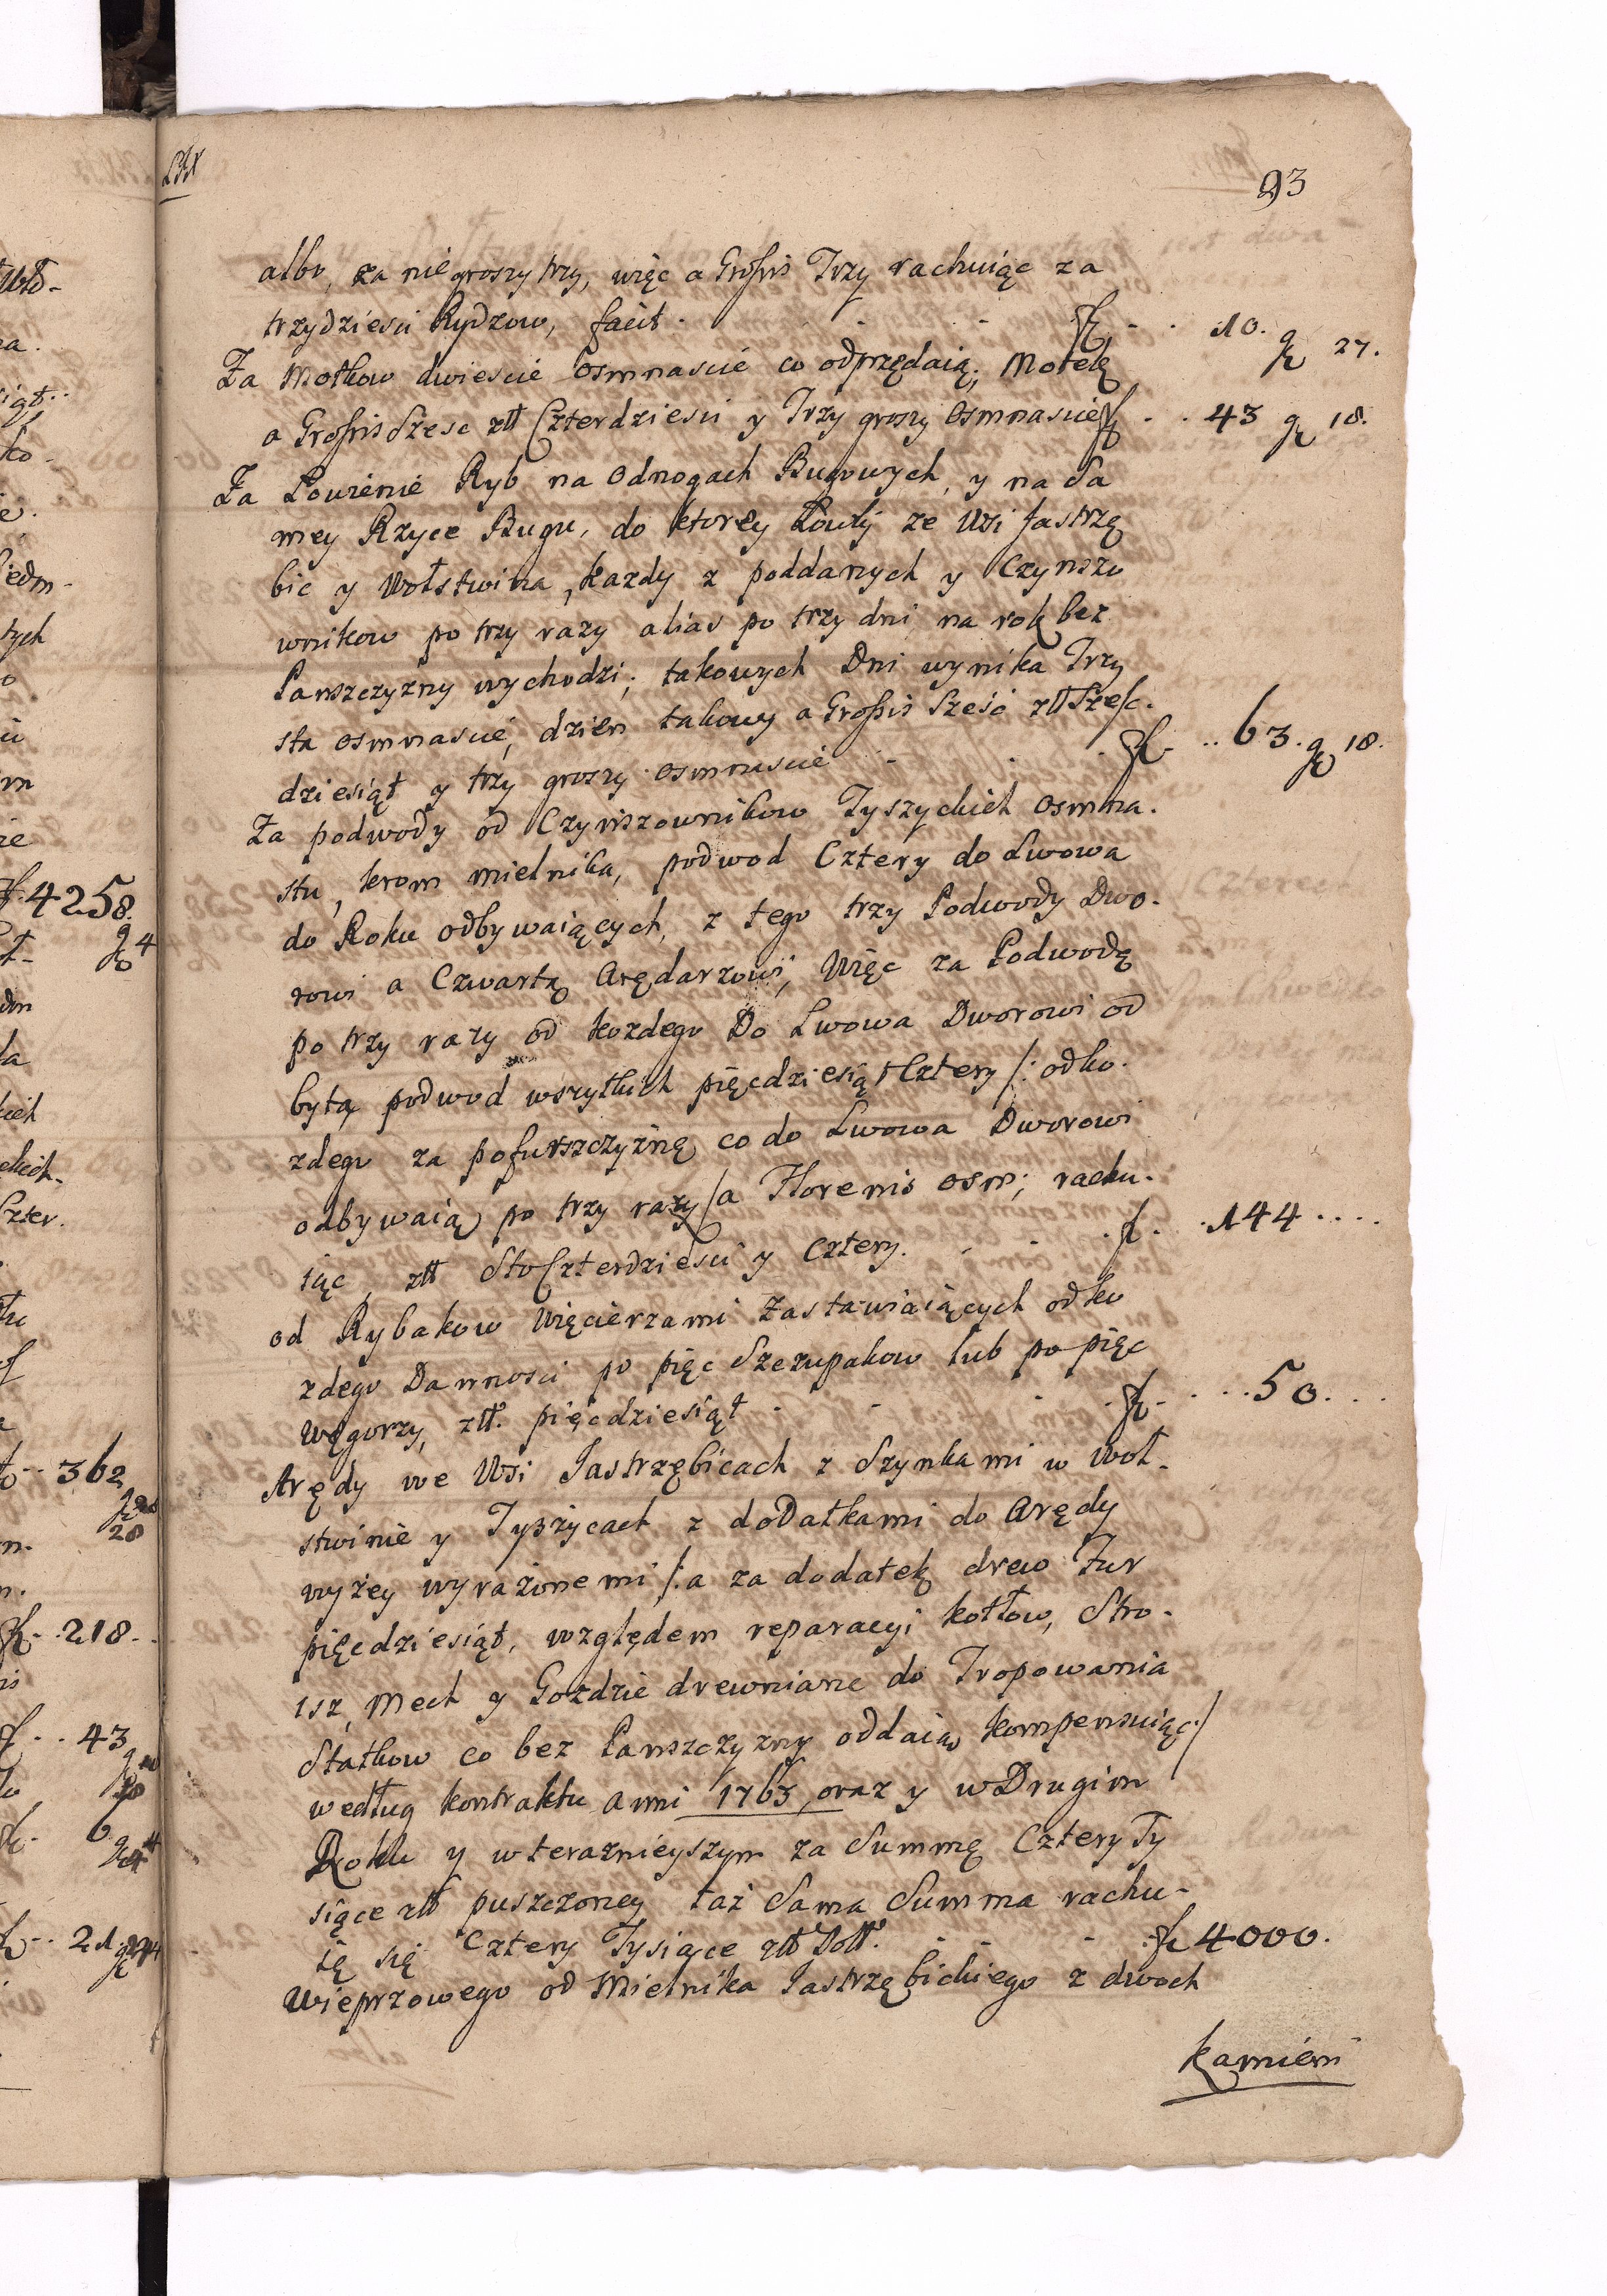 93
albo, za nie groszy trzy, więc a Grossis Trzy rachuiąc za
trzydziesci Rydzow, facit . fl . . 10. gr 27.
Za Motkow dwiescie osmnascie co odprzędaią; Motek
a Grossis Szesc zł Czterdziesci y Trzy groszy Osmnascie fl . . 43 gr 18.
Za Łowienie Ryb na Odnogach Bugowych, y na Sa
mey Rzyce Bugu, do ktorey Łowli ze Wsi Jastrzę
bic y Wołstwina, kazdy z poddanych y Czynszo
wnikow po trzy razy alias po trzy dni na rok bez
Panszczyzny wychodzi; takowych Dni wynika Trzy
sta osmnascie, dzien takowy a Grossis Sześć zł Szesc.
dziesiąt y trzy groszy osmnascie . . . fl . . 63. gr 18.
Za podwody od Czynszownikow Tyszyckich Osmna.
stu, krom mielnika, podwod Cztery do Lwowa
do Roku odbywaiących, z tego trzy Podwody Dwo.
rowi a Czwartą Aręndarzowi, Więc za Podwodę
po trzy razy od kozdego Do Lwowa Dworowi od
bytą podwod wszytkich pięcdziesiąt Cztery /: odko.
zdego za pofurszczyznę co do Lwowa Dworowi
odbywaią po trzy razy / a Florenis osm; rachu.
iąc, zł Sto Czterdziesci y Cztery. . . . fl . . 144 . . . .
od Rybakow Więcierzami Zastawiaiących odko
zdego Dannosci po pięc Szczupakow lub po pięc
Węgorzy, zł. pięcdziesiąt . . . fl . . . 50. . . .
Arędy we Wsi Jastrzębicach z Szynkami w Woł.
stwinie y Tyszycach z dodatkami do Arędy
wyżey wyrażonemi /: a za dodatek drew Fur
pięcdziesiąt, względem reparacyi kotłow, Stro.
isz, Mech y Gozdzie drewniane do Tropowania
Statkow co bez Panszczyzny oddaią kompensuiąc :/
według kontraktu anni 1763, oraz y w Drugim
Roku y w teraznieyszym za Summę Cztery Ty
siące zł puszczoney taż Sama Summa rachu-
ię się Cztery Tysiące zł Poll. . . . fl 4000.
Wieprzowego od Mielnika Jastrzębickiego z dwoch
kamieni
4258.
gr 4
362
28
218.
43
6
21